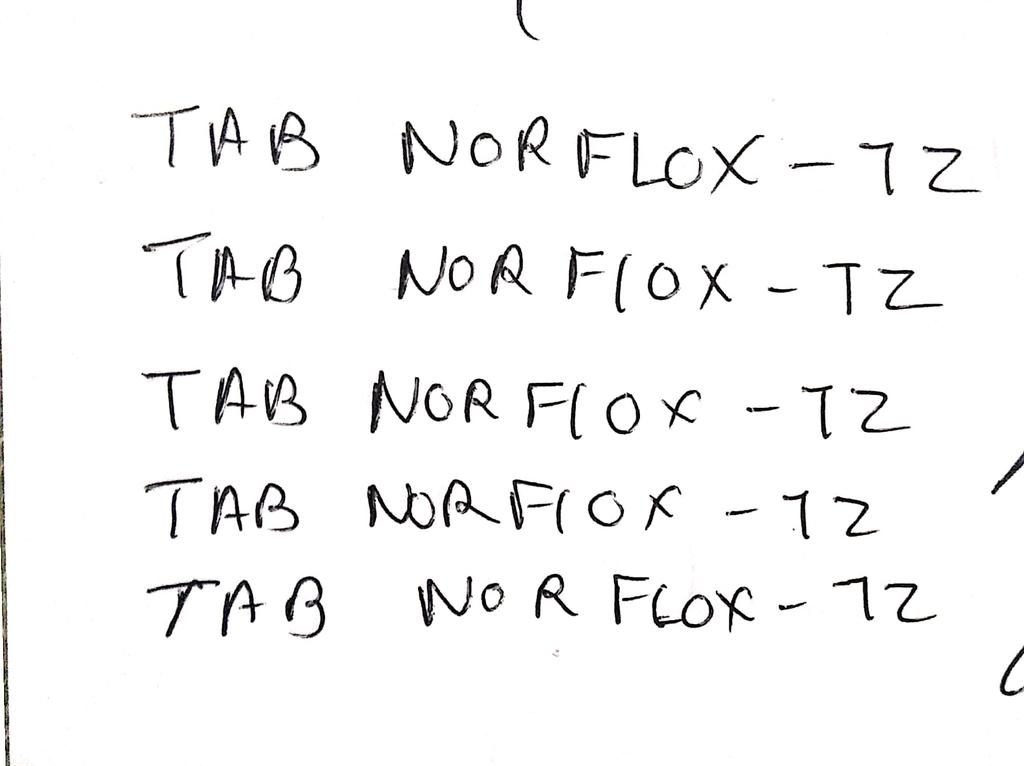 TAB NORFLOX-TZ
TAB NORFLOX-TZ
TAB NORFLOX-TZ
TAB NORFLOX-TZ
TAB NORFLOX-TZ